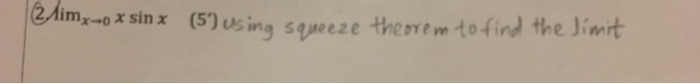 (2) lim_{x→0} x sin x (5') using squeeze theorem to find the limit